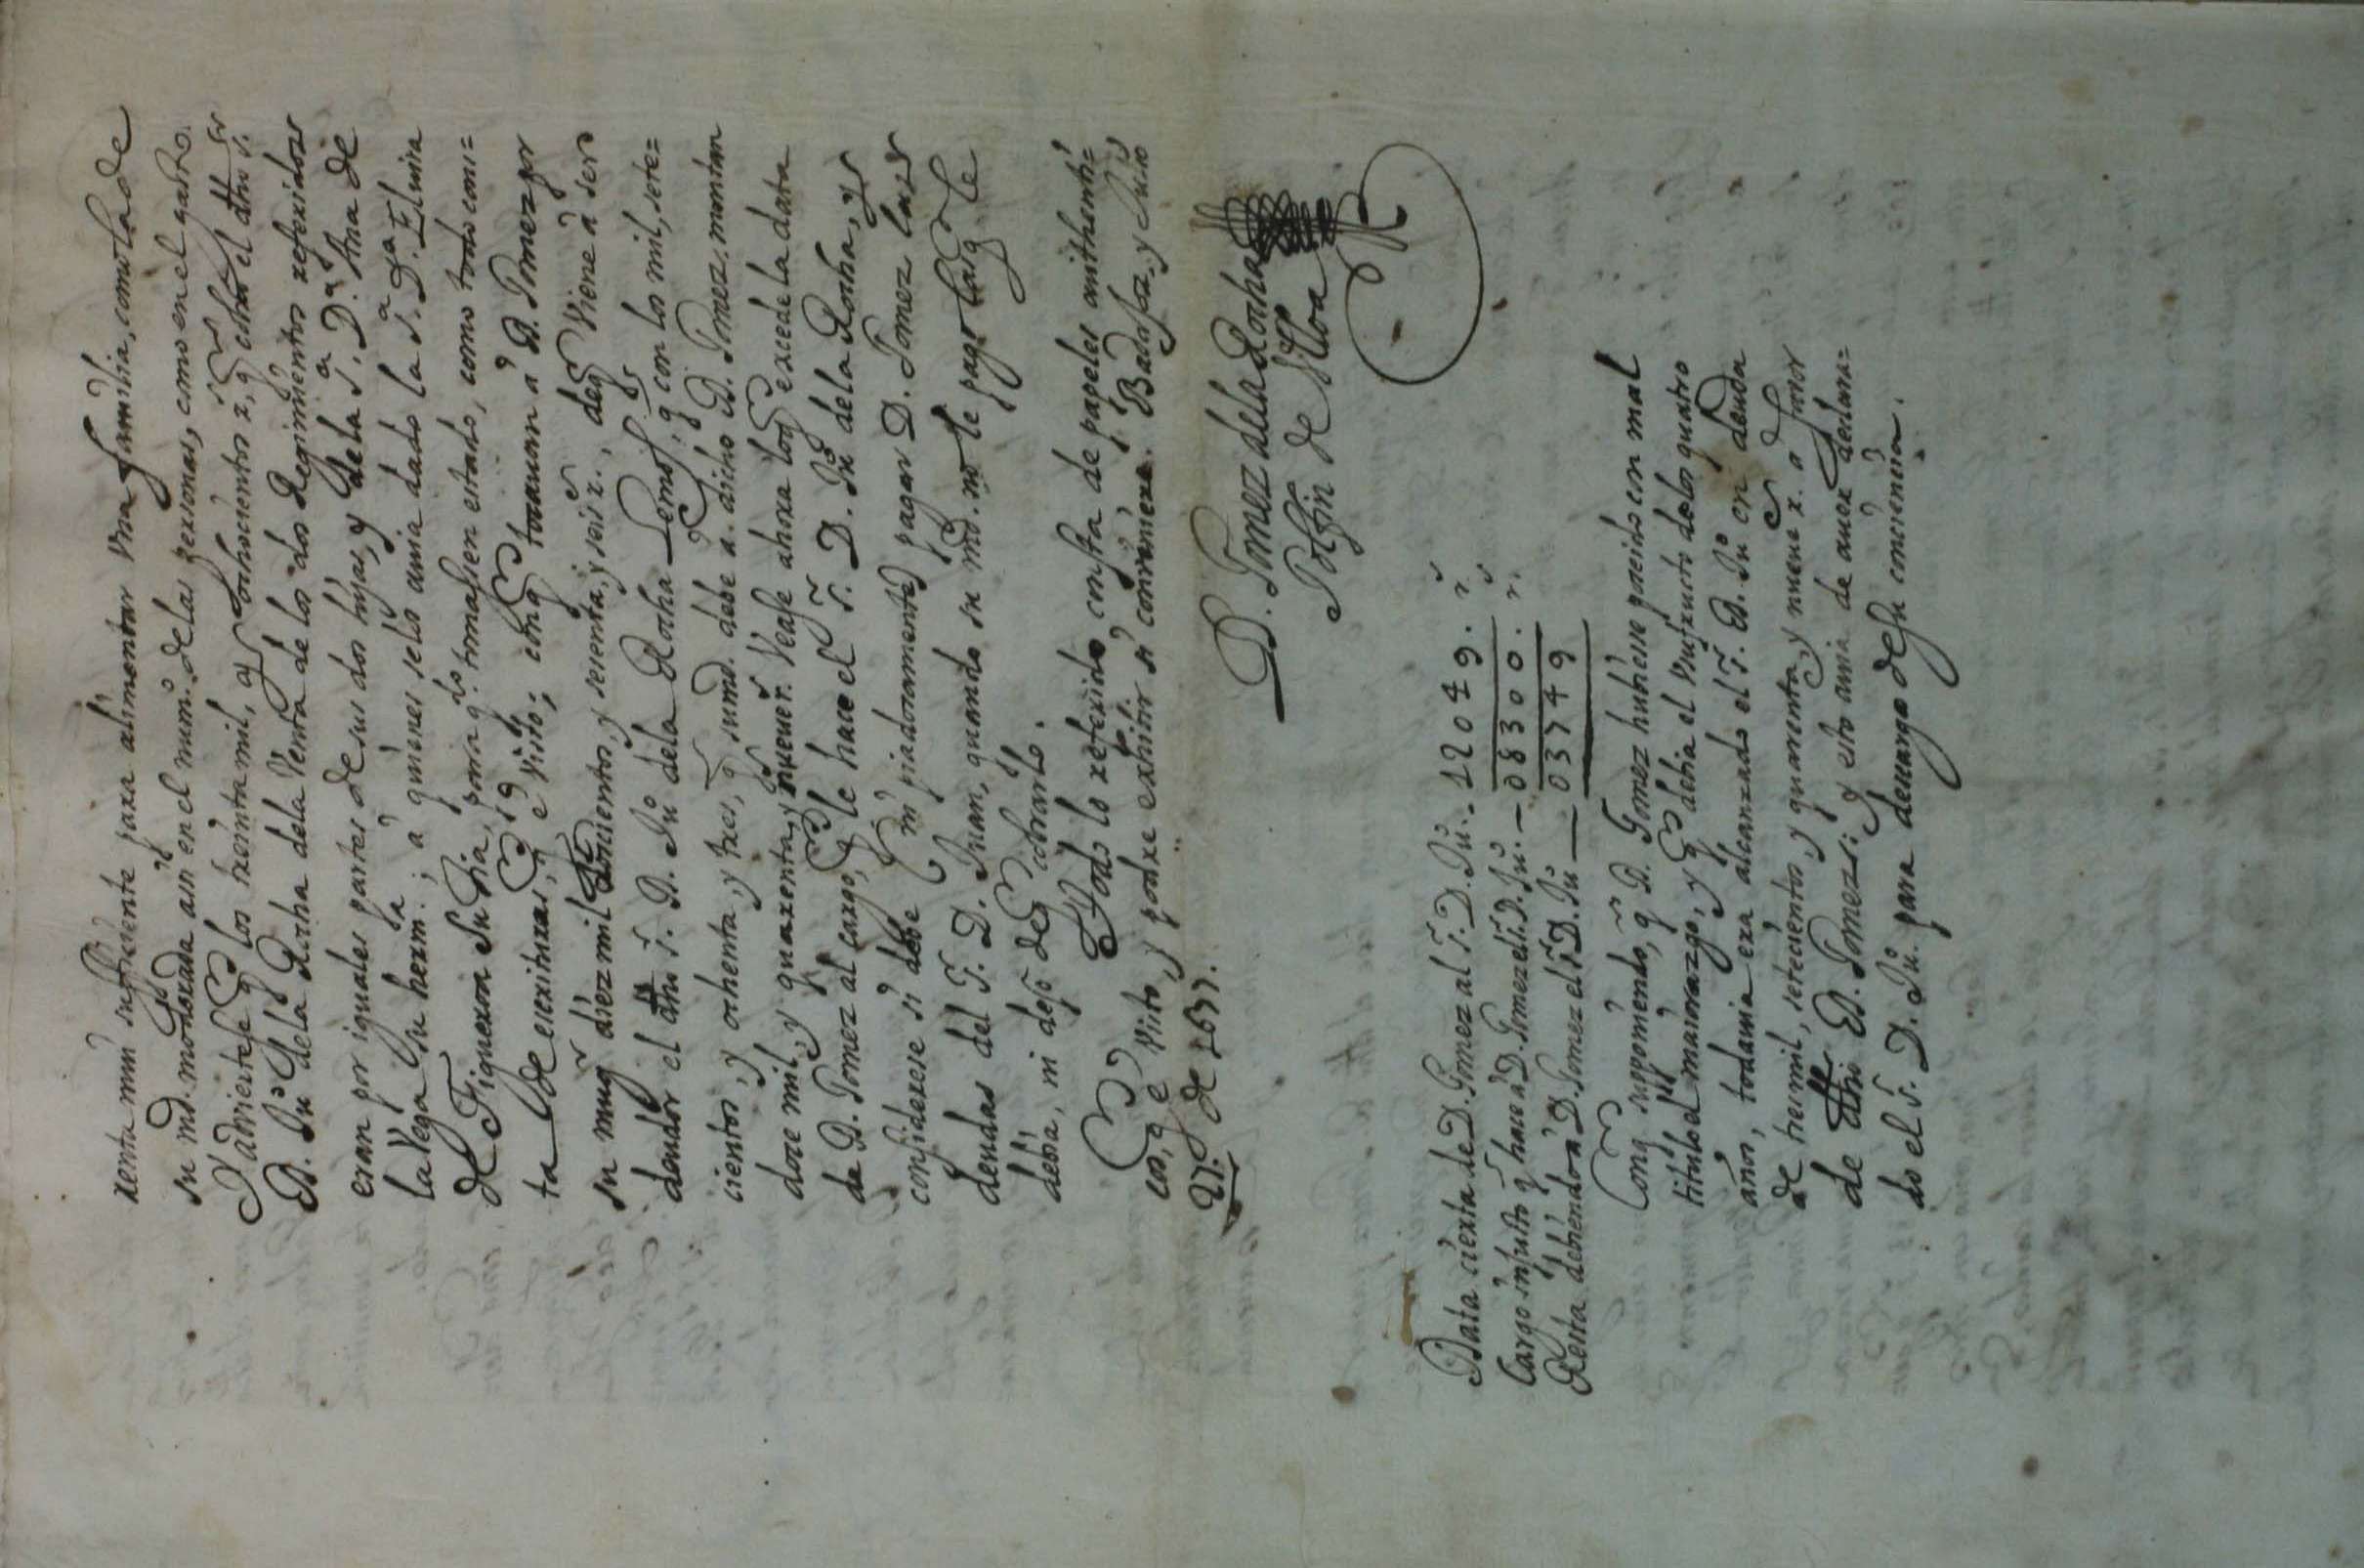 renta mui sufficiente para alimentar vna familia, como la de
su md. moderada assi en el num.o de las personas, como en el gasto.
Y advierte se q los treinta mil, y ochocientos r.s q cobro el dho s.r
D. Ju.o de la Rocha de la Venta de los dos Regimientos referidos
eran por iguales partes de sus dos hijas, y de la s.a D.a Ana de
la Vega su herm.a; a quienes se los auia dado la s.a D.a Eluira
de Figueroa su tia, para q.do tomassen estado, como todo cons=
ta de escrituras, q e visto; con q tocauan a D. Gomez por
su muger diez mil docientos, y sesenta, y seis r.s, de q viene a ser
deudor el dho s.r D. Ju.o de la Rocha q con los mil, sete=
cientos, y ochenta, y tres, q su md. debe a dicho D. Gomez, montan
doce mil, y quarenta, y nueue r.s Vease ahora lo q excede la data
de D. Gomez al cargo, q le hace el s.r D. Ju.o de la Rocha, y
considerese si debe mi piadosamente pagar D. Gomez las
deudas del s.r D. Juan, quando su md. no le pago las q le
debia, ni dejo de q cobrarlo.
Todo lo referido consta de papeles authenti=
cos, q e visto, y podre exhibir si conviniere. Badajoz, y Junio
27. de 1677.
D. Gomez de la Rocha
Golfin de Vlloa
Data cierta de D. Gomez al s.r D. Ju.o - 12049. r.s
Cargo injusto q hace a D. Gomez el s.r D. Ju.o — 08300. r.s
Resta debiendo a D. Gomez el s.r D. Ju.o — 03749
Con q supponiendo, q D. Gomez hubiesse posseido con mal
titulo el maiorazgo, y q debia el vsufructo de los quatro
años, todauia era alcanzado el s.r D. Ju.o en deuda
de tres mil, setecientos, y quarenta, y nueue r.s a fauor
de dho D. Gomez: y esto auia de auer declara=
do el s.r D. Ju.o para descargo de su conciencia.